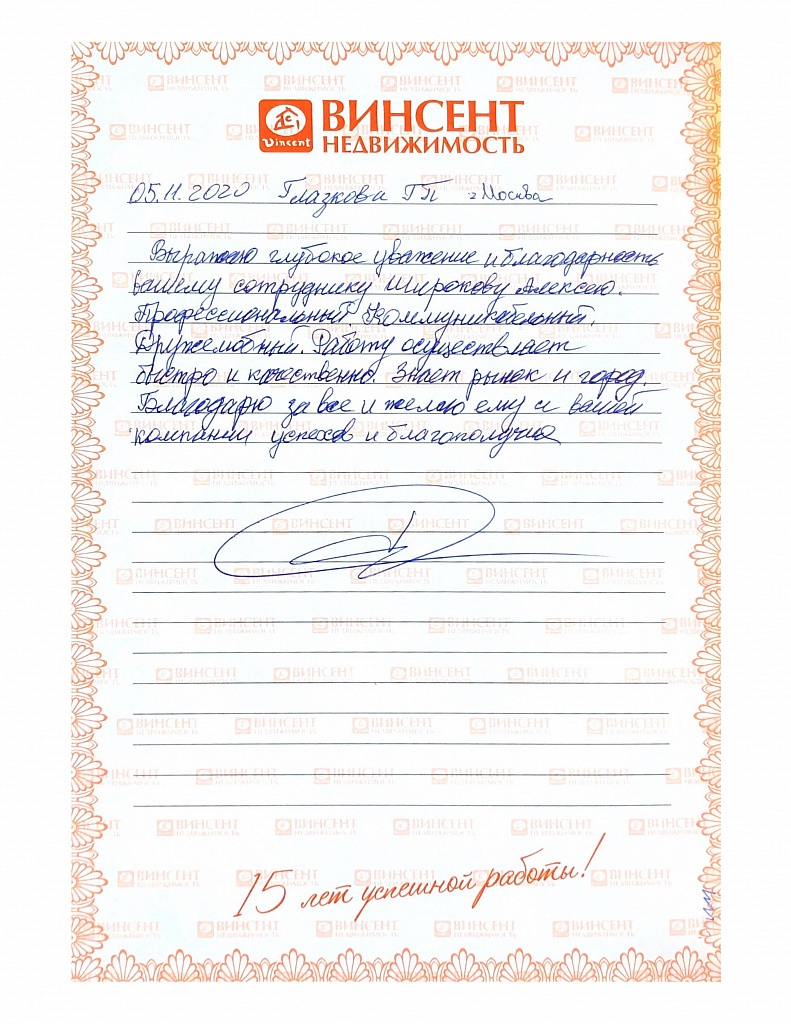 ВИНСЕНТ
Vincent
НЕДВИЖИМОСТЬ
05.11.2020 Глазкова ГП г Москва
Выражаю глубокое уважение и благодарность
вашему сотруднику Широкову Алексею.
Профессиональный. Коммуникабельный.
Дружелюбный. Работу осуществляет
быстро и качественно. Знает рынок и город.
Благодарю за все и желаю ему и вашей
компании успехов и благополучия
15 лет успешной работы!